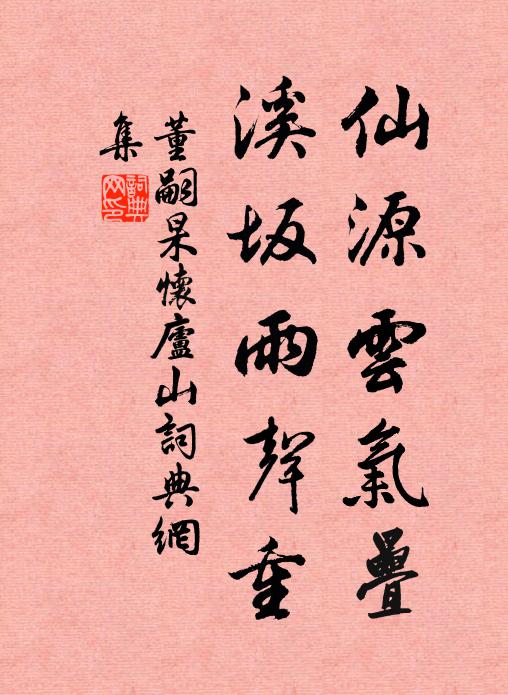 仙源雲氣疊
溪坂雨聲重
董嗣杲懷廬山詞典網
集
詞典
网印